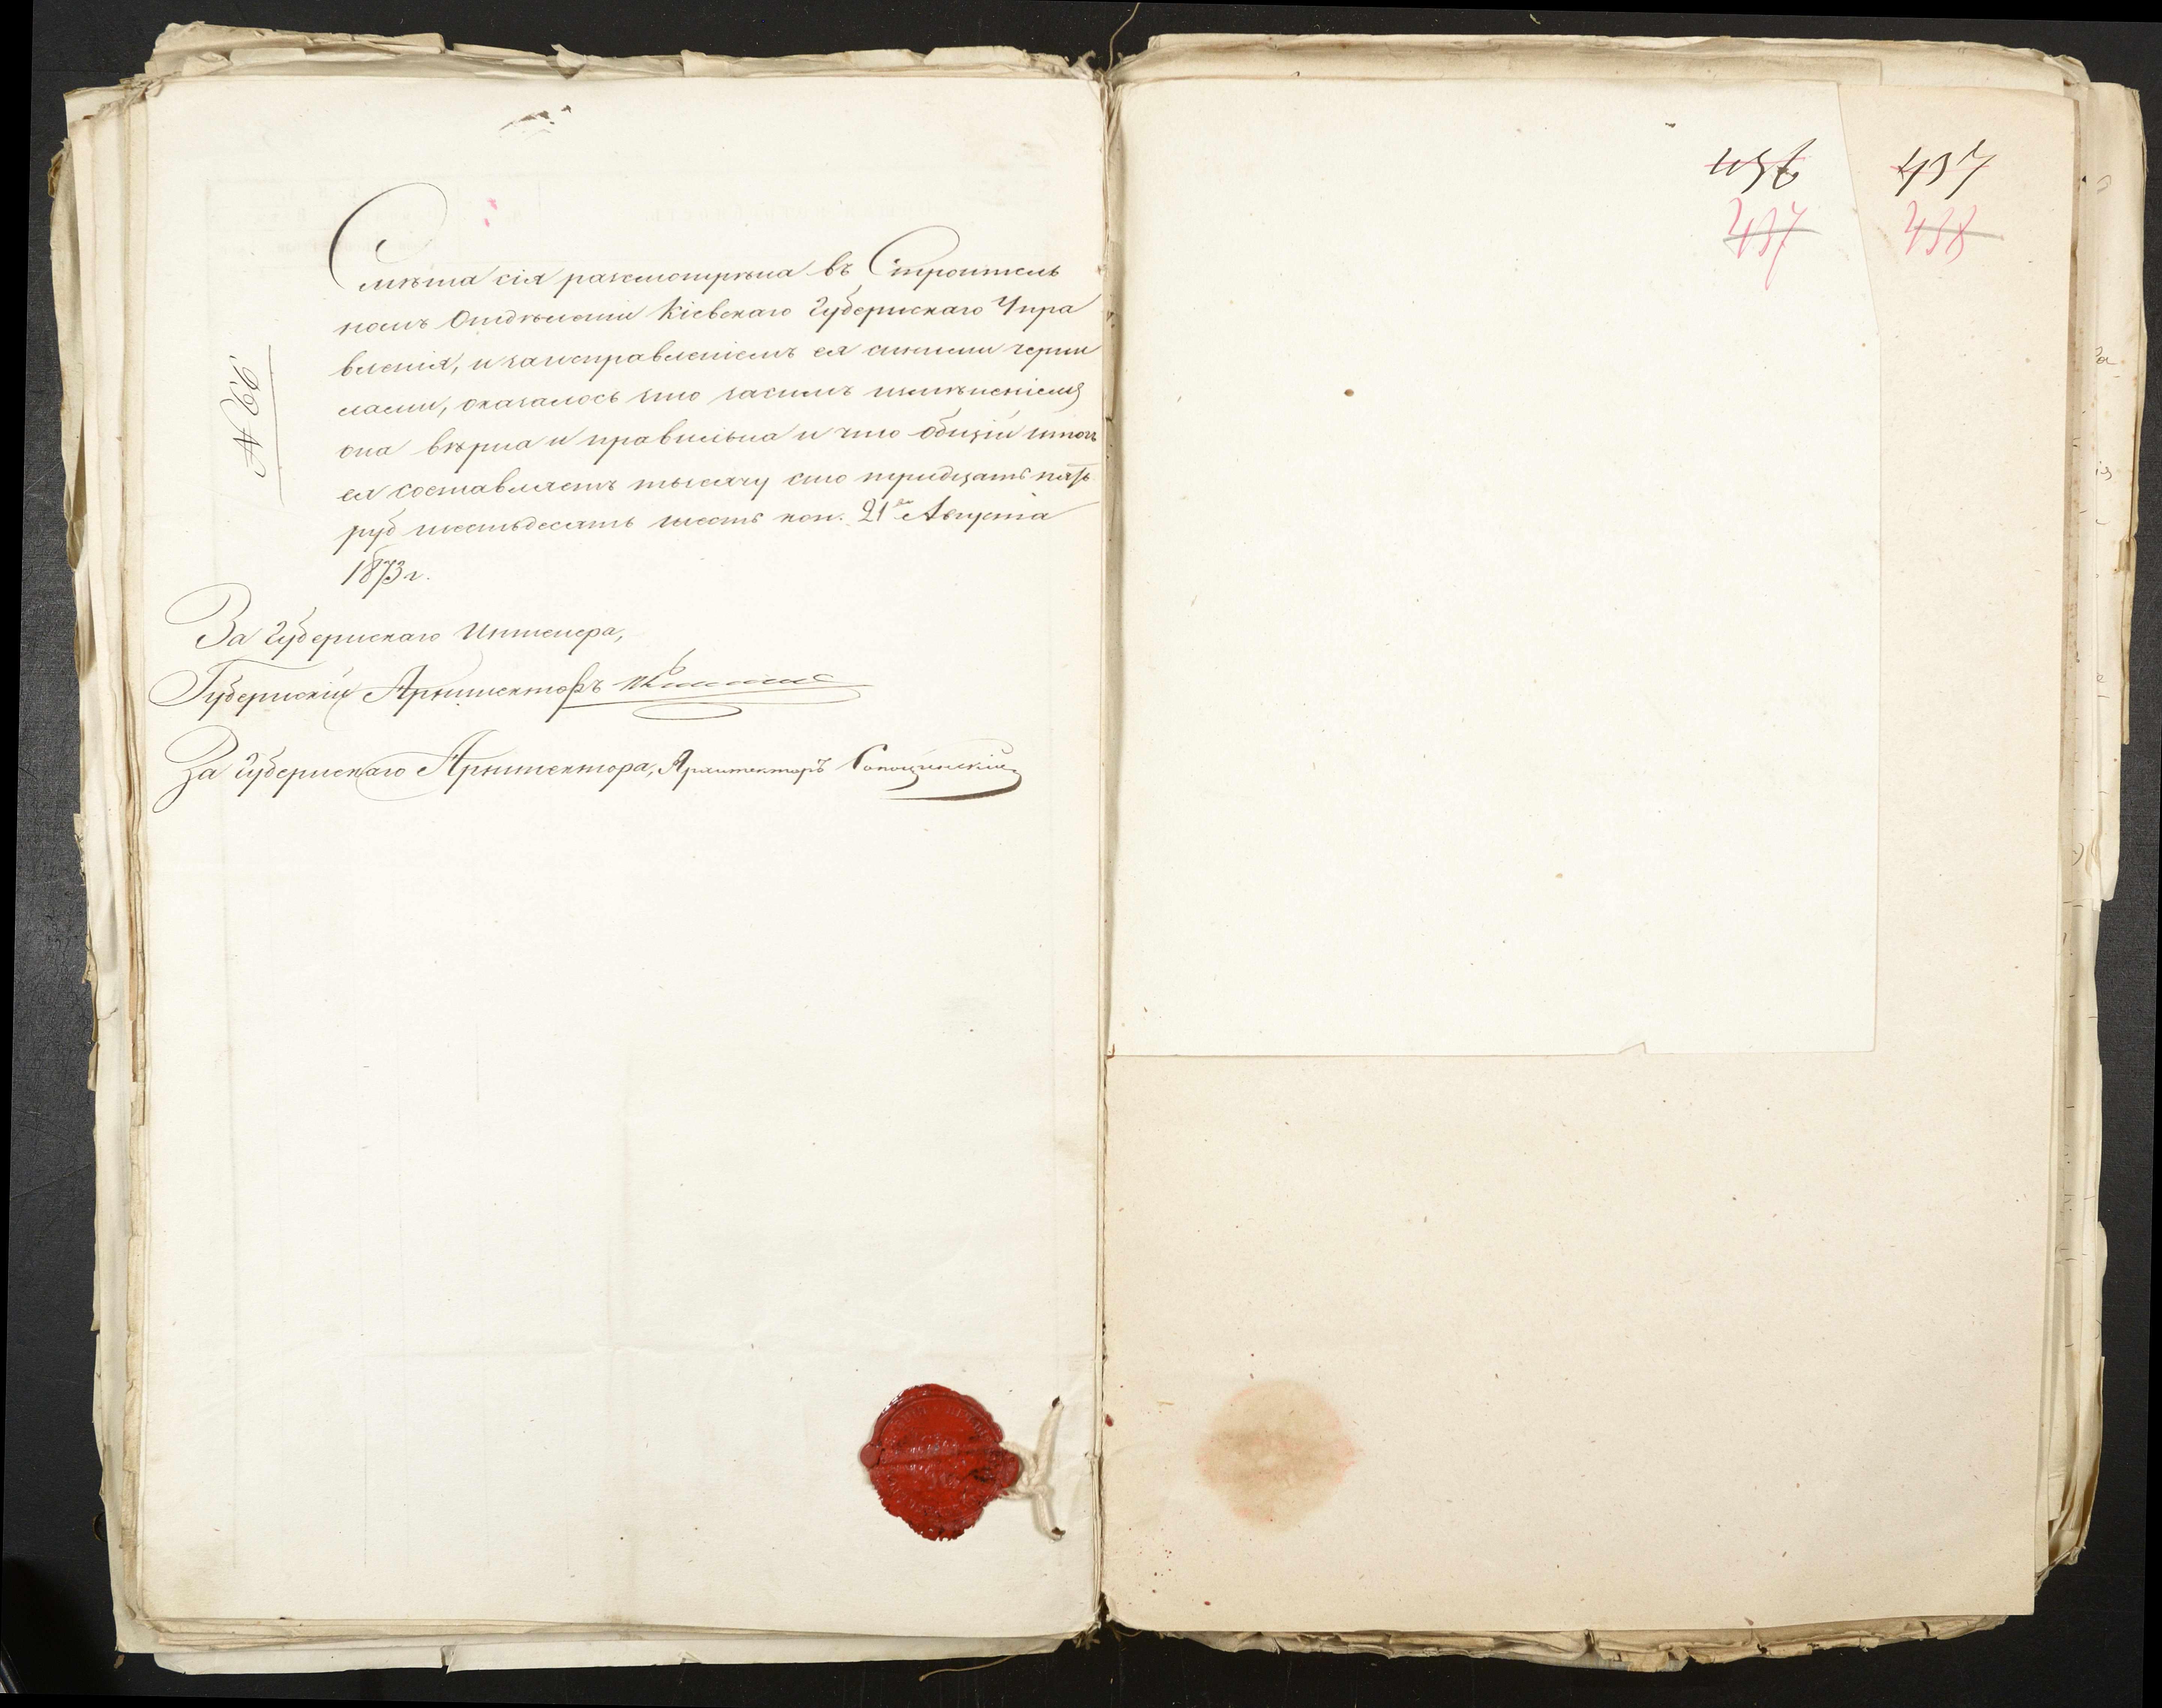 N 66
Смѣта сія разсмотрѣна въ Строитель
номъ Отдѣленіи Кіевскаго Губернскаго Упра
вленія, и за исправленіемъ ея синими черни
лами, оказалось что засимъ измѣненіемъ
она вѣрна и правильна и что общій итогъ
ея составляетъ тысячу сто тридцать пять
руб шестьдесятъ шесть коп. 21го Августа
1873 г.
За Губернскаго Инженера,
Губернскій Архитекторъ
За Губернскаго Архитектора, Архитекторъ
436 437
437 438